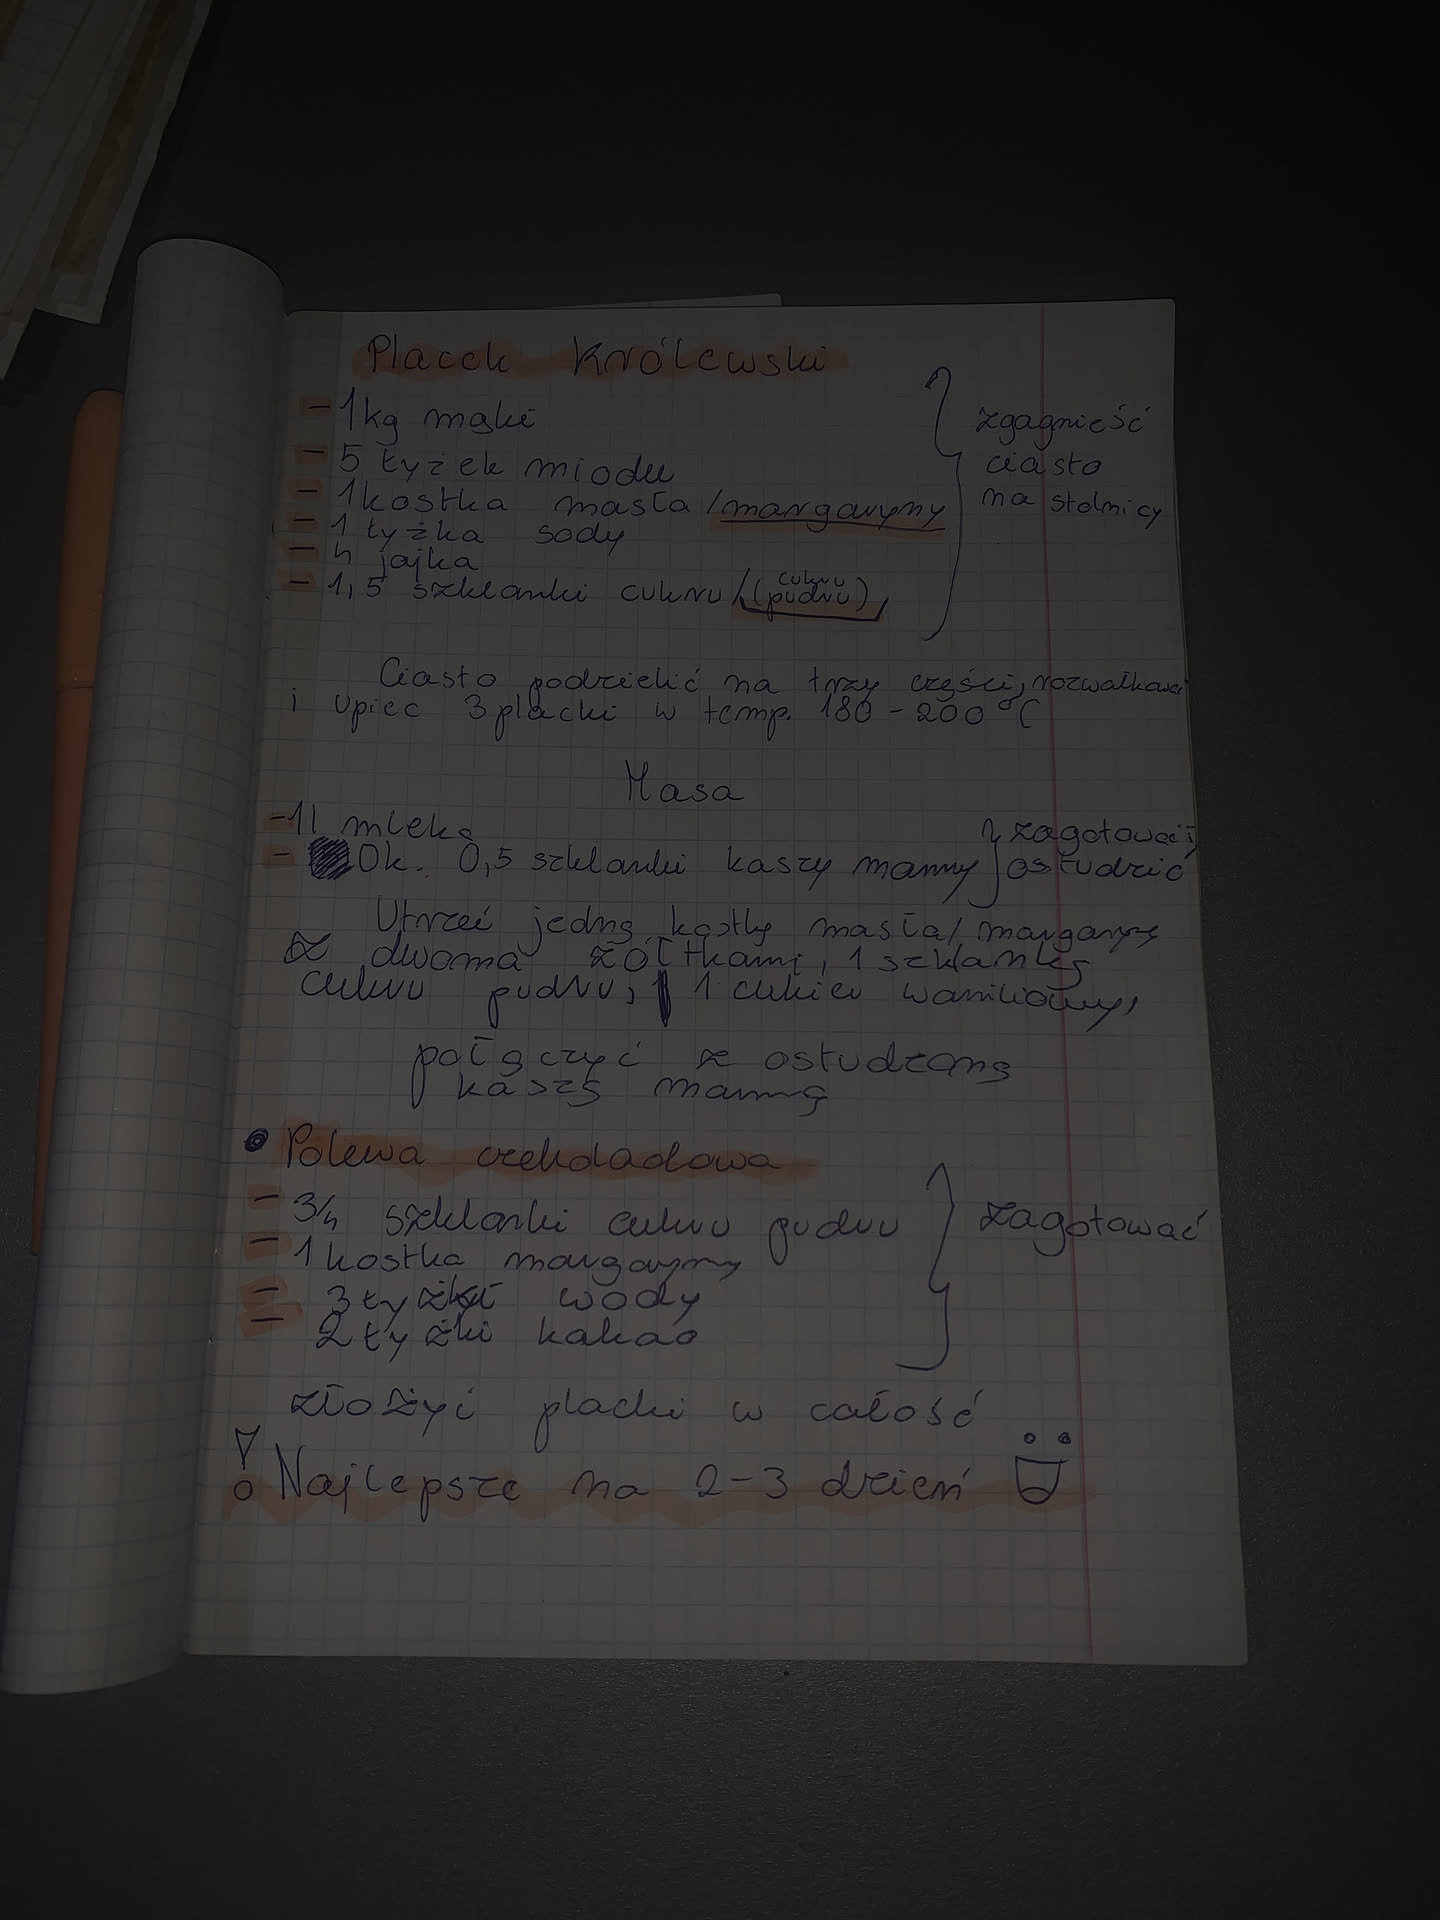 Placek Królewski
- 1kg mąki
- 5 łyżek miodu
- 1 kostka masła / margaryny
- 1 łyżka sody
- 4 jajka
- 1,5 szklanki cukru / (cukru pudru)
zgagnieść
ciasto
na stolnicy
Ciasto podzielić na trzy części, rozwałkować
i upiec 3 placki w temp. 180 - 200 °C
Masa
- 1l mleka
- Ok. 0,5 szklanki kaszy manny
zagotować i
ostudzić
Utrzeć jedną kostkę masła / margaryny
z dwoma żółtkami, 1 szklanką
cukru pudru, 1 cukier waniliowy,
połączyć z ostudzoną
kaszą manną
• Polewa czekoladowa
- 3/4 szklanki cukru pudru
- 1 kostka margaryny
- 3 łyżki wody
- 2 łyżki kakao
zagotować
złożyć placki w całość
! Najlepsze na 2-3 dzień